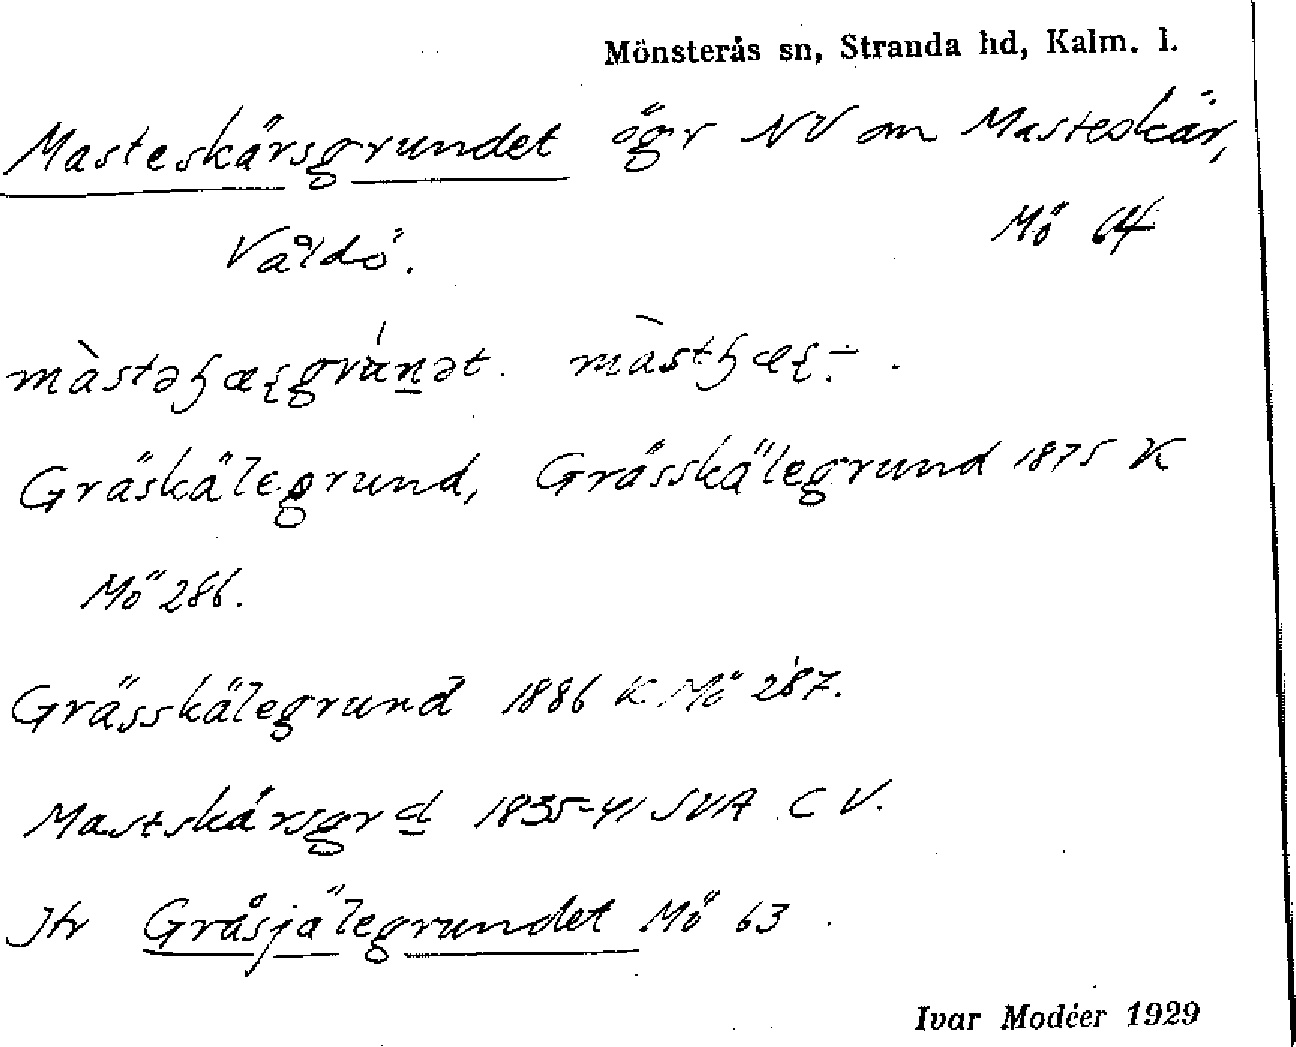 Mönsterås sn, Stranda hd, Kalm. l.
Masteskärsgrundet ögr NV om Masteskär,
Våldö. Mö 64
màstəɧæ
Gräskälegrund, Grässkälegrund 1875 K
Mö 286.
Grässkälegrund 1886 K Mö 287.
Mastskärsgrd 1835-41 SVA C V.
Jfr Gråsjälegrundet Mö 63.
Ivar Modéer 1929